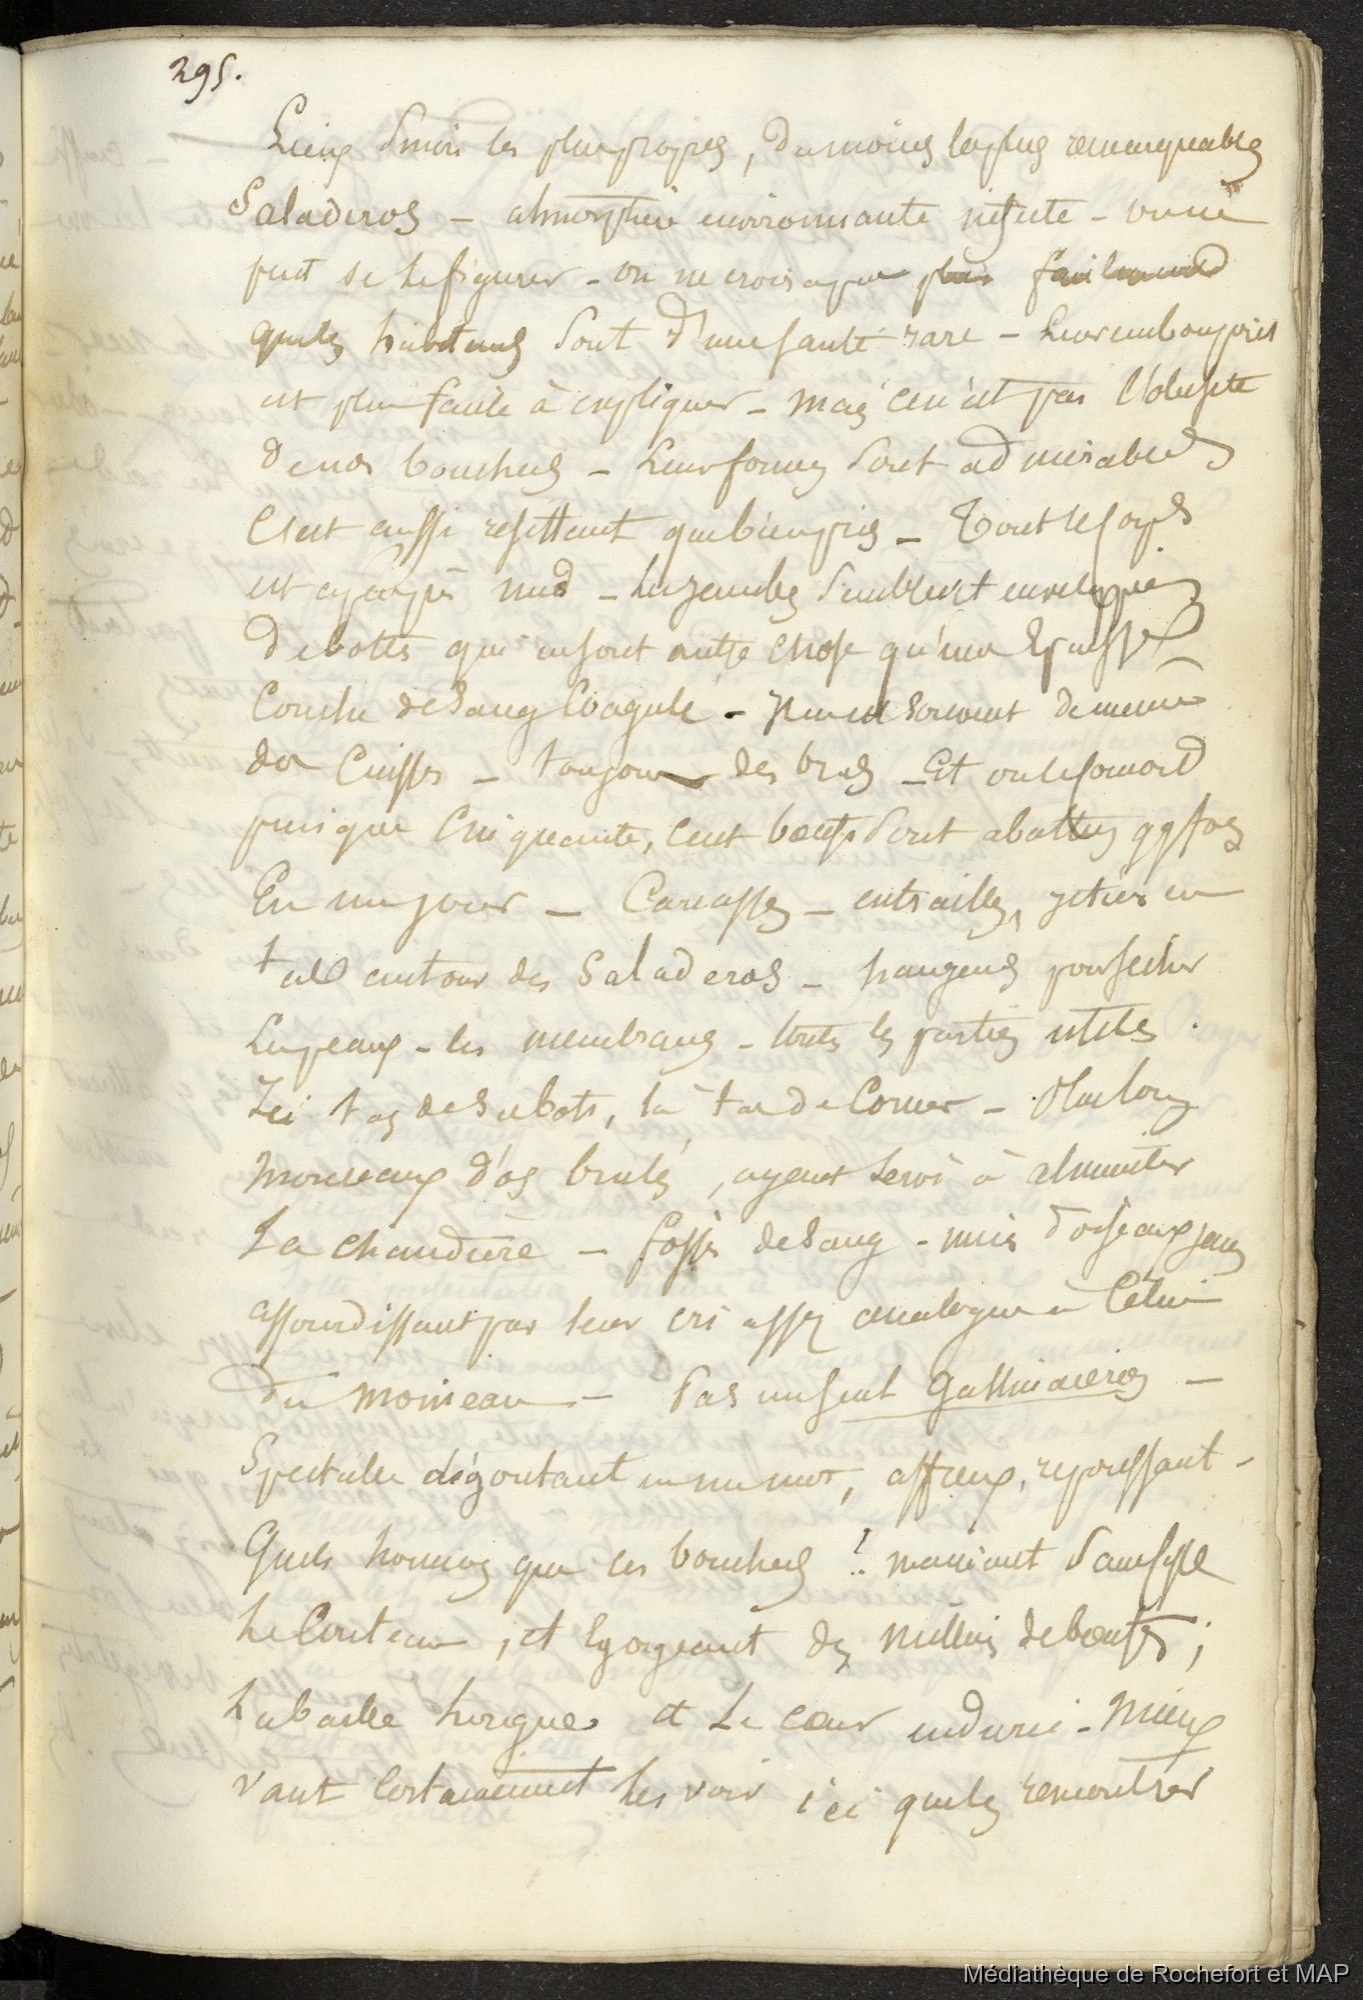 295.
Lieux sinon les plus propres, du moins les plus remarquables
Saladeros - atmosphère environnante infecte - on ne
peut se le figurer - on ne croira pas plus facilement
que les habitans sont d'une santé rare - Leur embonpoint
est plus facile à expliquer - mais ce n'est pas l'obésité
de nos bouchers - Leurs formes sont admirables
C'est aussi résistant que bien pris - Tout le corps
est à peu près nud - les jambes semblent enveloppées
de bottes qui ne sont autre chose qu'une Epaisse
Couche de Sang Coagulé - souvent de même
des Cuisses - toujours des bras - Et on le conçoit
puisque Cinquante, Cent boeufs sont abattus qqfois
En un jour - Carcasses - entrailles, jetées en
tas autour des Saladeros - hangars pour sécher
Les peaux - les membranes - toutes les parties utiles.
Ici tas de sabots, là tas de Cornes - Plus loin
Morceaux d'os brulés, ayant servi à alimenter
La chaudière - fossés de Sang - nuées d'oiseaux
assourdissant par leur cri assez analogue à Celui
du moineau - Pas un seul Gallinaceros -
Spectacle dégoutant en un mot, affreux, repoussant -
Quels hommes que ces bouchers !.. maniant sans cesse
Le Couteau, et Egorgeant des milliers de boeufs ;
et Le coeur endurci - Mieux
vaut Certainement les voir ici que les rencontrer
Médiathèque de Rochefort et MAP